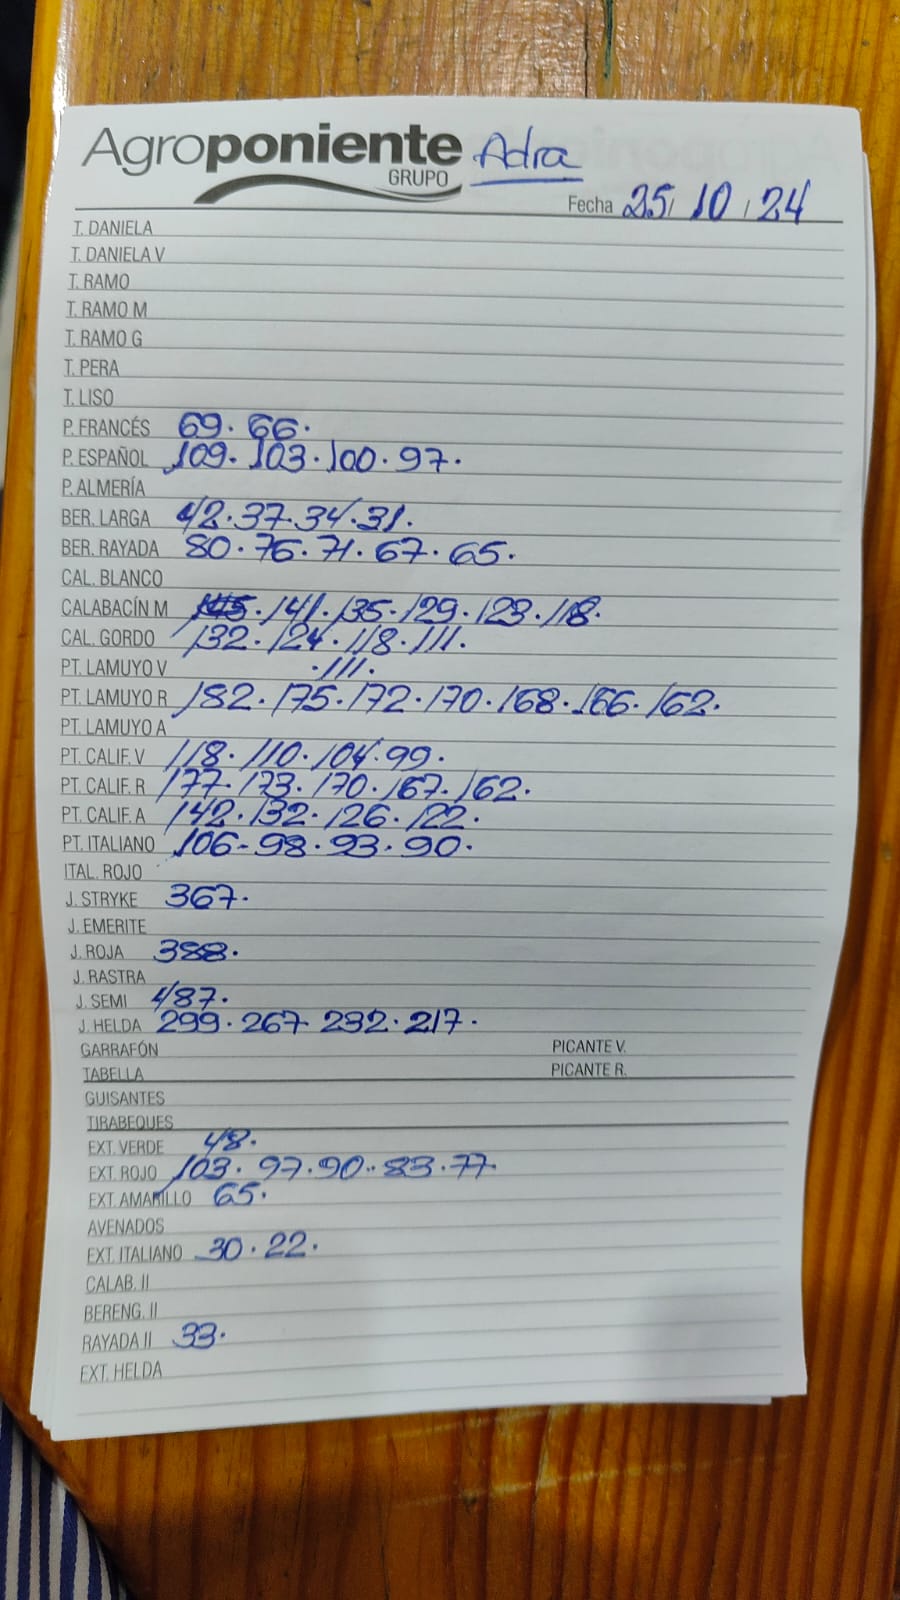 Agroponiente Adra
GRUPO
Fecha 25/ 10 / 24
T. DANIELA
T. DANIELA V
T. RAMO
T. RAMO M
T. RAMO G
T. PERA
T. LISO
P. FRANCÉS 69. 66.
P. ESPAÑOL 109. 103. 100. 97.
P. ALMERÍA
BER. LARGA 42. 37. 34. 31.
BER. RAYADA 80. 76. 71. 67. 65.
CAL. BLANCO
CALABACÍN M 145. 141. 135. 129. 123. 118.
CAL. GORDO 132. 124. 118. 111.
PT. LAMUYO V .111.
PT. LAMUYO R 182. 175. 172. 170. 168. 166. 162.
PT. LAMUYO A
PT. CALIF. V 118. 110. 104. 99.
PT. CALIF. R 177. 173. 170. 167. 162.
PT. CALIF. A 142. 132. 126. 122.
PT. ITALIANO 106- 98. 93. 90.
ITAL. ROJO
J. STRYKE 367.
J. EMERITE
J. ROJA 388.
J. RASTRA
J. SEMI 487.
J. HELDA 299. 267. 232. 217.
GARRAFÓN PICANTE V.
TABELLA PICANTE R.
GUISANTES
TIRABEQUES
EXT. VERDE 48.
EXT. ROJO 103. 97. 90.. 83. 77.
EXT. AMARILLO 65.
AVENADOS
EXT. ITALIANO 30. 22.
CALAB. II
BERENG. II
RAYADA II 33.
EXT. HELDA